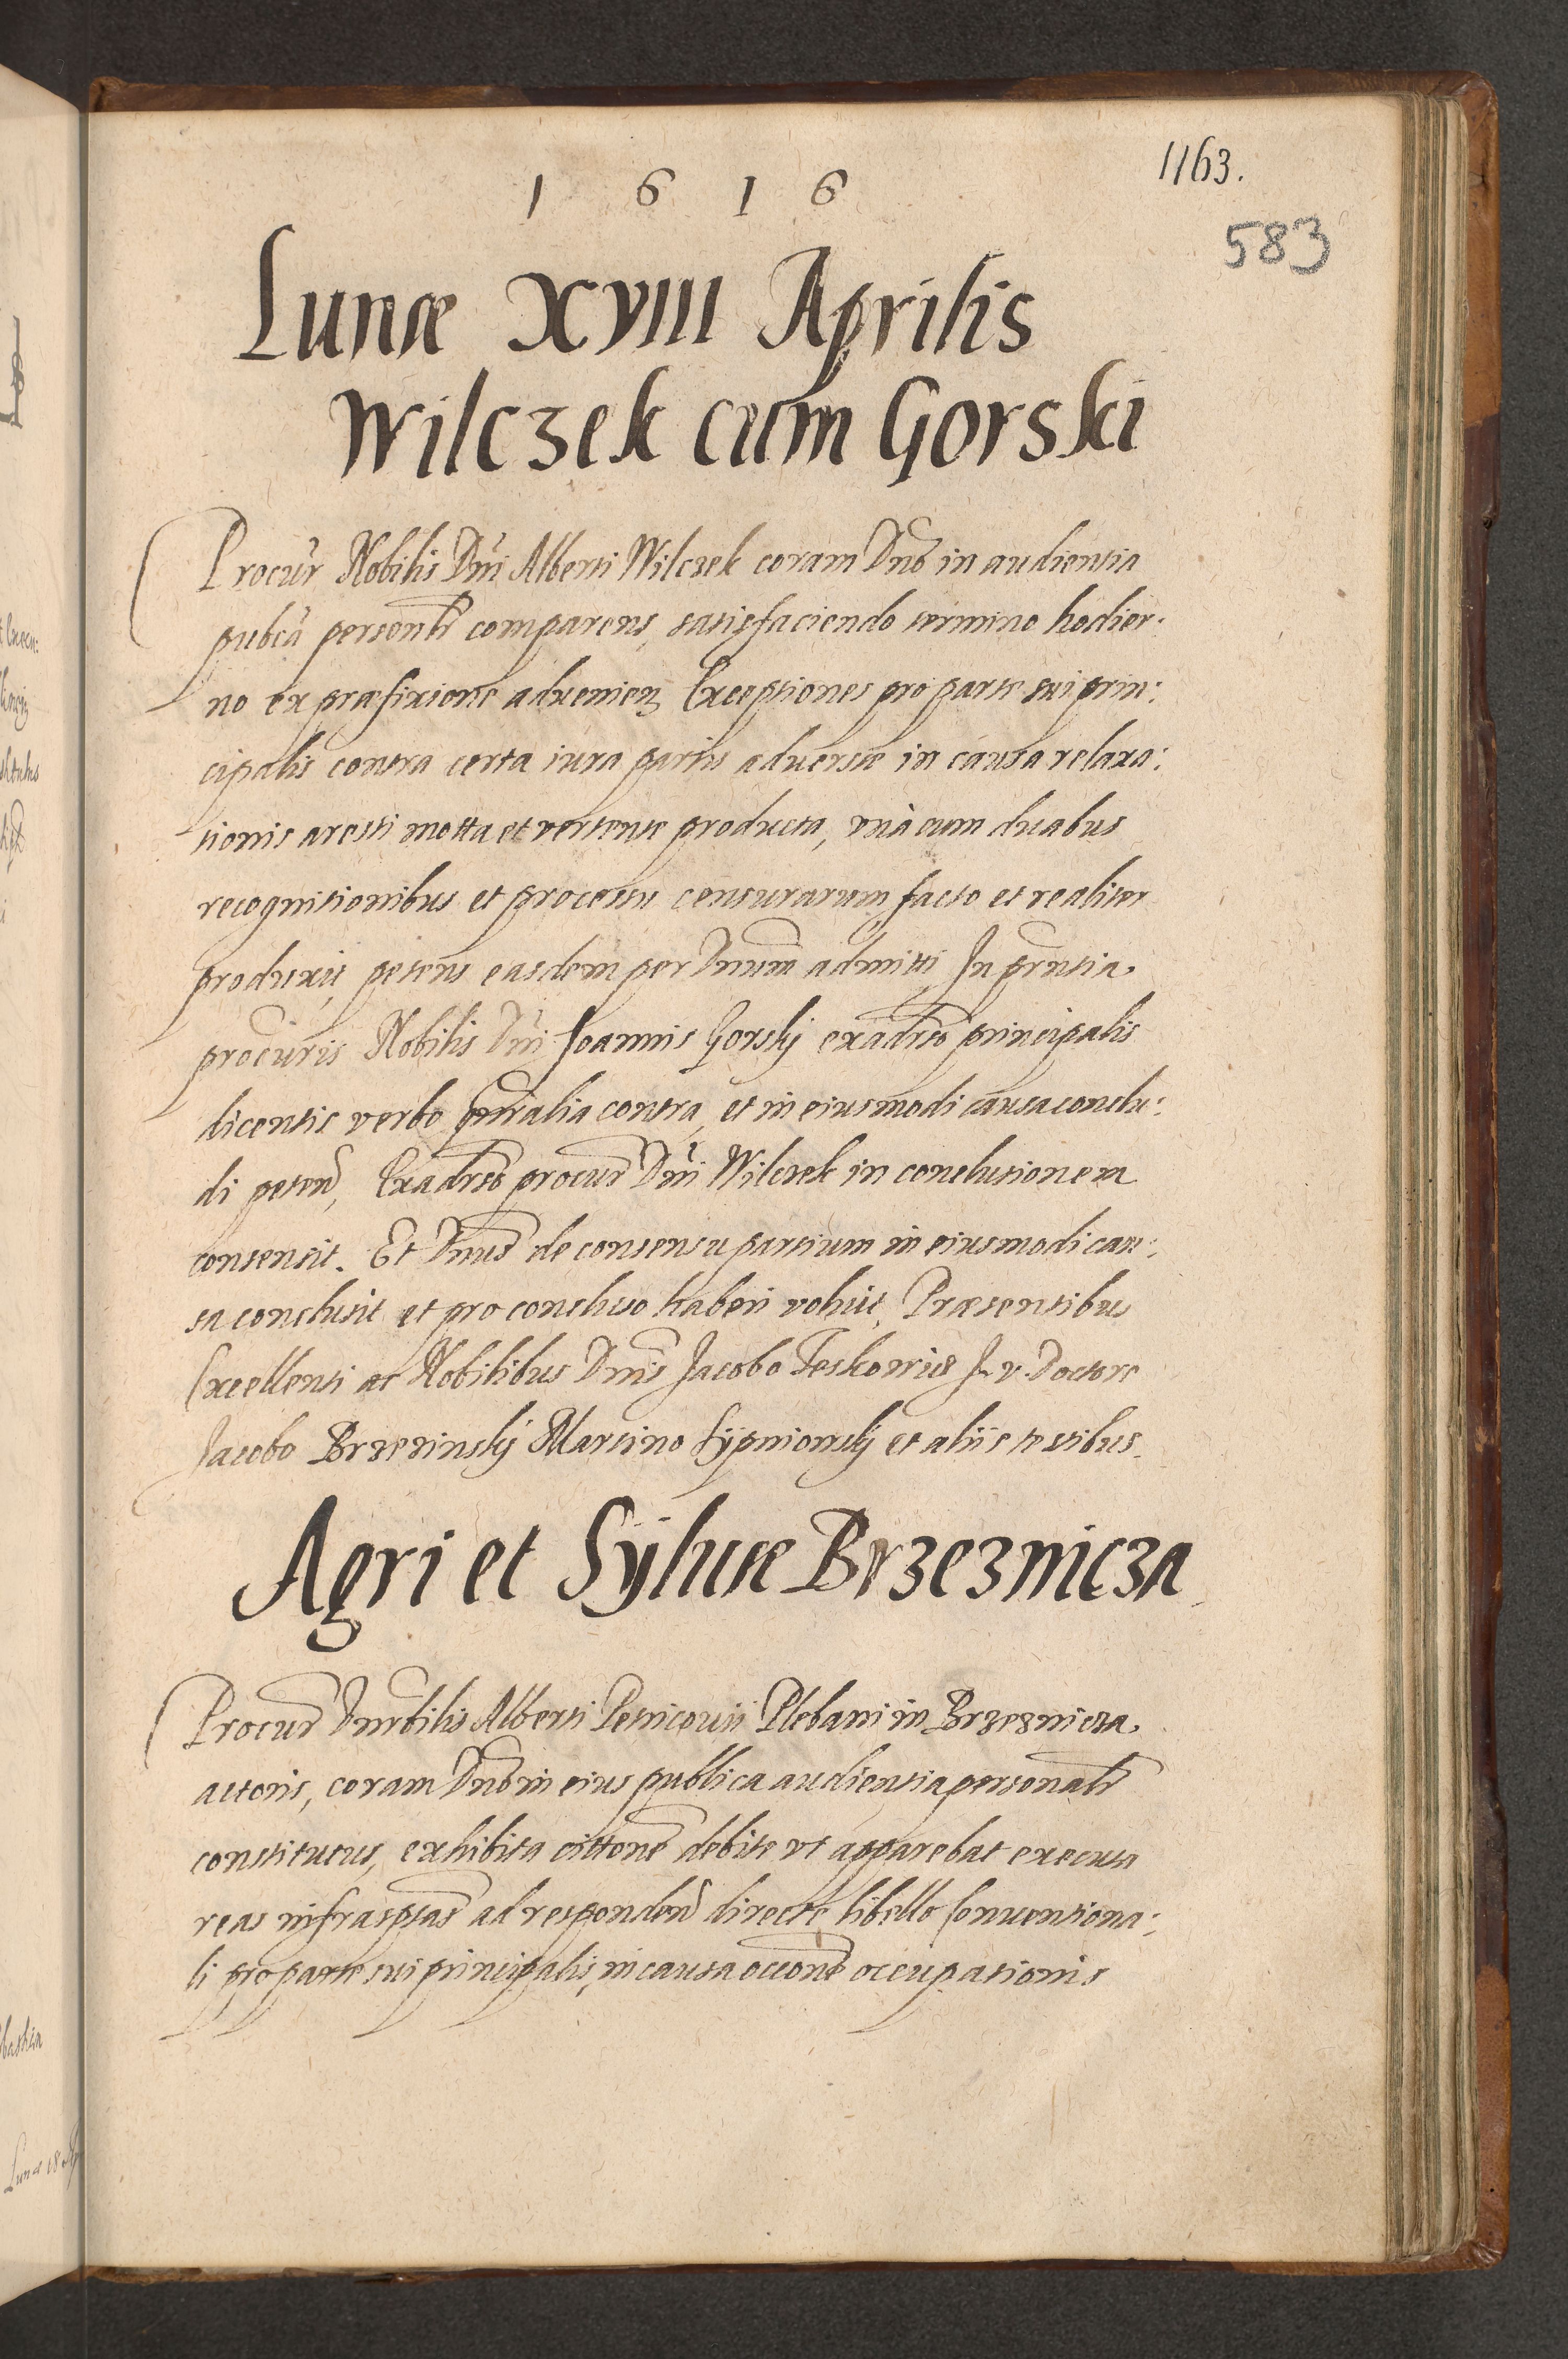 1616
1163.
583
Lunæ XVIII Aprilis
Wilczek cum Gorski
Procur Nobilis Dni Alberti Wilczek coram Dno in audientia
publca personlr comparens, satisfaciendo termino hodier-
no ex præfixione aduenien Exceptiones pro parte sui prin:
cipalis contra certa iura partis aduersæ in causa relaxa:
tionis aresti motta et vertente producta, vnà cum duabus
recognitionibus et processu censurarum facto et realiter
produxit, petens easdem per Dnum admitti, In prntia
procuris Nobilis Dni Joannis Gorskj exadrso principalis
dicentis verbo gnralia contra, et in eiusmodi causa conclu:
di peten, Exadrso procur Dni Wilczek in conclusionem
consensit. Et Dnus de consensu partium in eiusmodi cau:
sa conclusit et pro concluso haberi voluit, Præsentibus
Excellenti ac Nobilibus Dnis Jacobo Jeskowicz J. v. Doctore
Jacobo Brzezinskÿ Martino Sÿpniowskÿ et aliis testibus.
Agri et Sÿluæ Brzeznicza
Procur Dnrbilis Alberti Petricouii Plebani in Brzeznicza
actoris, coram Dno in eius publica audientia personalr
constitutus, exhibita cittone debite vt apparebat executa
reas infrasptas ad responden directe libello Conuentiona:
li pro parte sui principalis, in causa occone occupationis
Lunæ 18